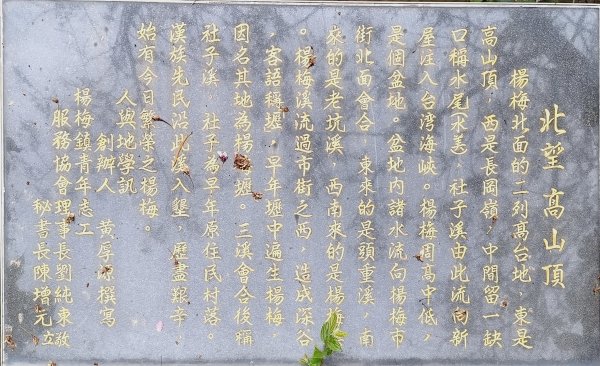 北望高山頂
楊梅北面的二列高台地，東是
高山頂，西是長岡嶺，中間留一缺
口稱水尾(水美)，社子溪由此流向新
屋注入台湾海峽。楊梅周高中低，
是個盆地。盆地內諸水流向楊梅市
街北面會合，東來的是頭重溪，南
來的是老坑溪，西南來的是楊梅溪
。楊梅溪流過市街之西，造成深谷
，客語稱壢，早年壢中遍生楊梅，
因名其地為楊梅壢。三溪會合後稱
社子溪，社子為早年原住民村落。
漢族先民沿此溪入墾，歷盡艱辛
始有今日繁榮之楊梅。
人與地學訊
創辦人 黃厚源撰寫
楊梅鎮青年志工
服務協會理事長劉純東敬
秘書長陳增元立